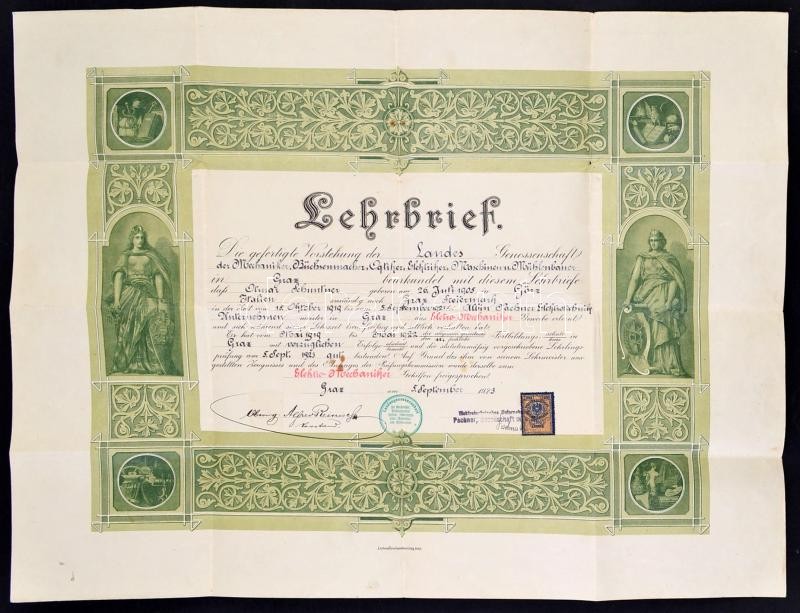 Lehrbrief.
Die gefertigte Vorstehung der Landes Genossenschaft
der Mechaniker, Büchsenmacher, Schleifer, Maschinen u. Mühlenbauer
in Graz beurkundet mit diesem Lehrbriefe
daß Otmar geboren am 26 Juli 1905 in Görz
Italien zuständig nach Graz Steiermark
in der Zeit vom 15. Oktober 1919 bis 5. September 1923 bei Albin Pachner
Unternehmen in Graz das Elektro-Mechaniker Gewerbe erlernt
und sich während seiner Lehrzeit treu, fleißig und sittlich verhalten hat.
Er hat vom Mai 1919 bis Ende 1922 die Fortbildungsschule
Graz mit vorzüglichem Erfolge und die statutenmäßig vorgeschriebene Lehrlings-
prüfung am 5. Sept. 1923 gut bestanden. Auf Grund des ihm von seinem Lehrmeister aus-
gestellten Zeugnisses und des Antrages der Prüfungskommission wurde derselbe zum
Elektro-Mechaniker Gehilfen freigesprochen.
Graz am 5. September 1923
Obmg Alfred
Vorstand
Pachner, Gesellschaft